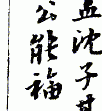 血沈子
公能福